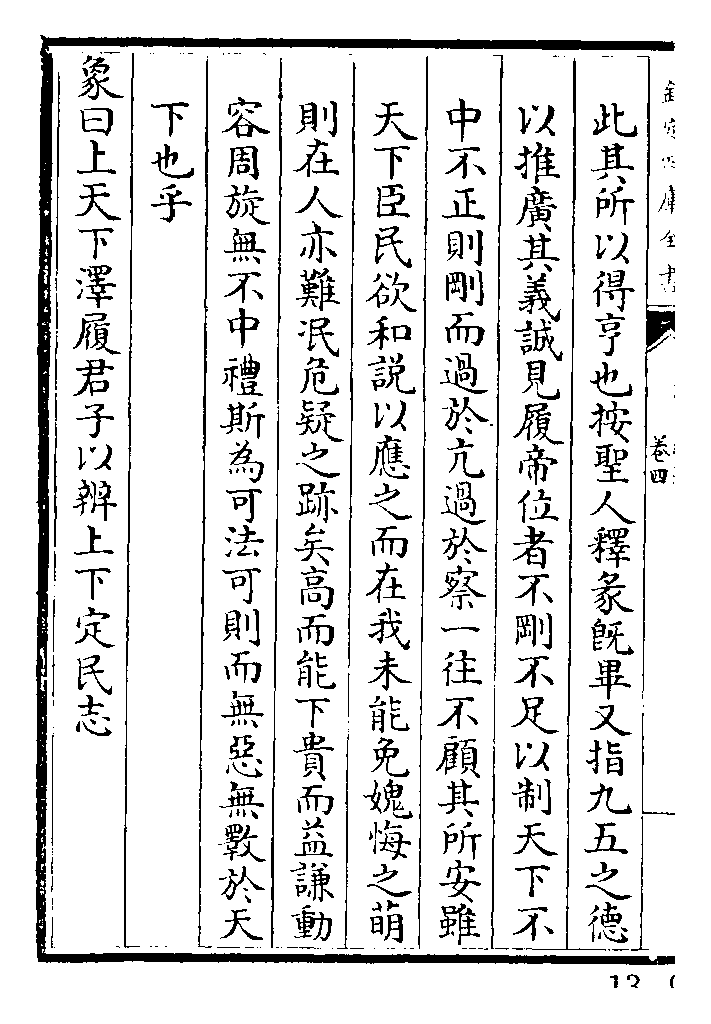 欽定四庫全書
卷四
此其所以得亨也按聖人釋彖既畢又指九五之德
以推廣其義誠見履帝位者不剛不足以制天下不
中不正則剛而過於亢過於察一往不顧其所安雖
天下臣民欲和說以應之而在我未能免媿悔之萌
則在人亦難泯危疑之跡矣高而能下貴而益謙動
容周旋無不中禮斯為可法可則而無惡無斁於天
下也乎
象曰上天下澤履君子以辨上下定民志